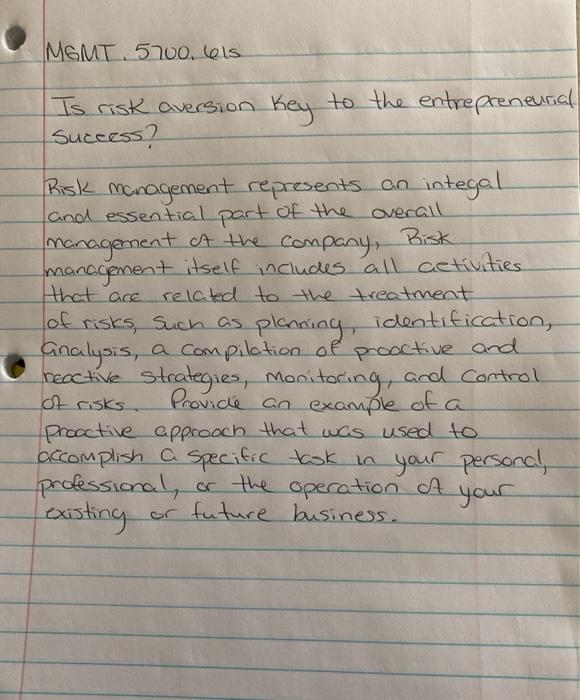 MGMT. 5700.61s
Is risk aversion key to the entrepreneurial
success?
Risk management represents an integal
and essential part of the overall
management of the company, Risk
management itself includes all activities
that are related to the treatment
of risks, such as planning, identification,
analysis, a compilation of proactive and
reactive strategies, monitoring, and control
of risks. Provide an example of a
proactive approach that was used to
accomplish a specific task in your personal,
professional, or the operation of your
existing or future business.